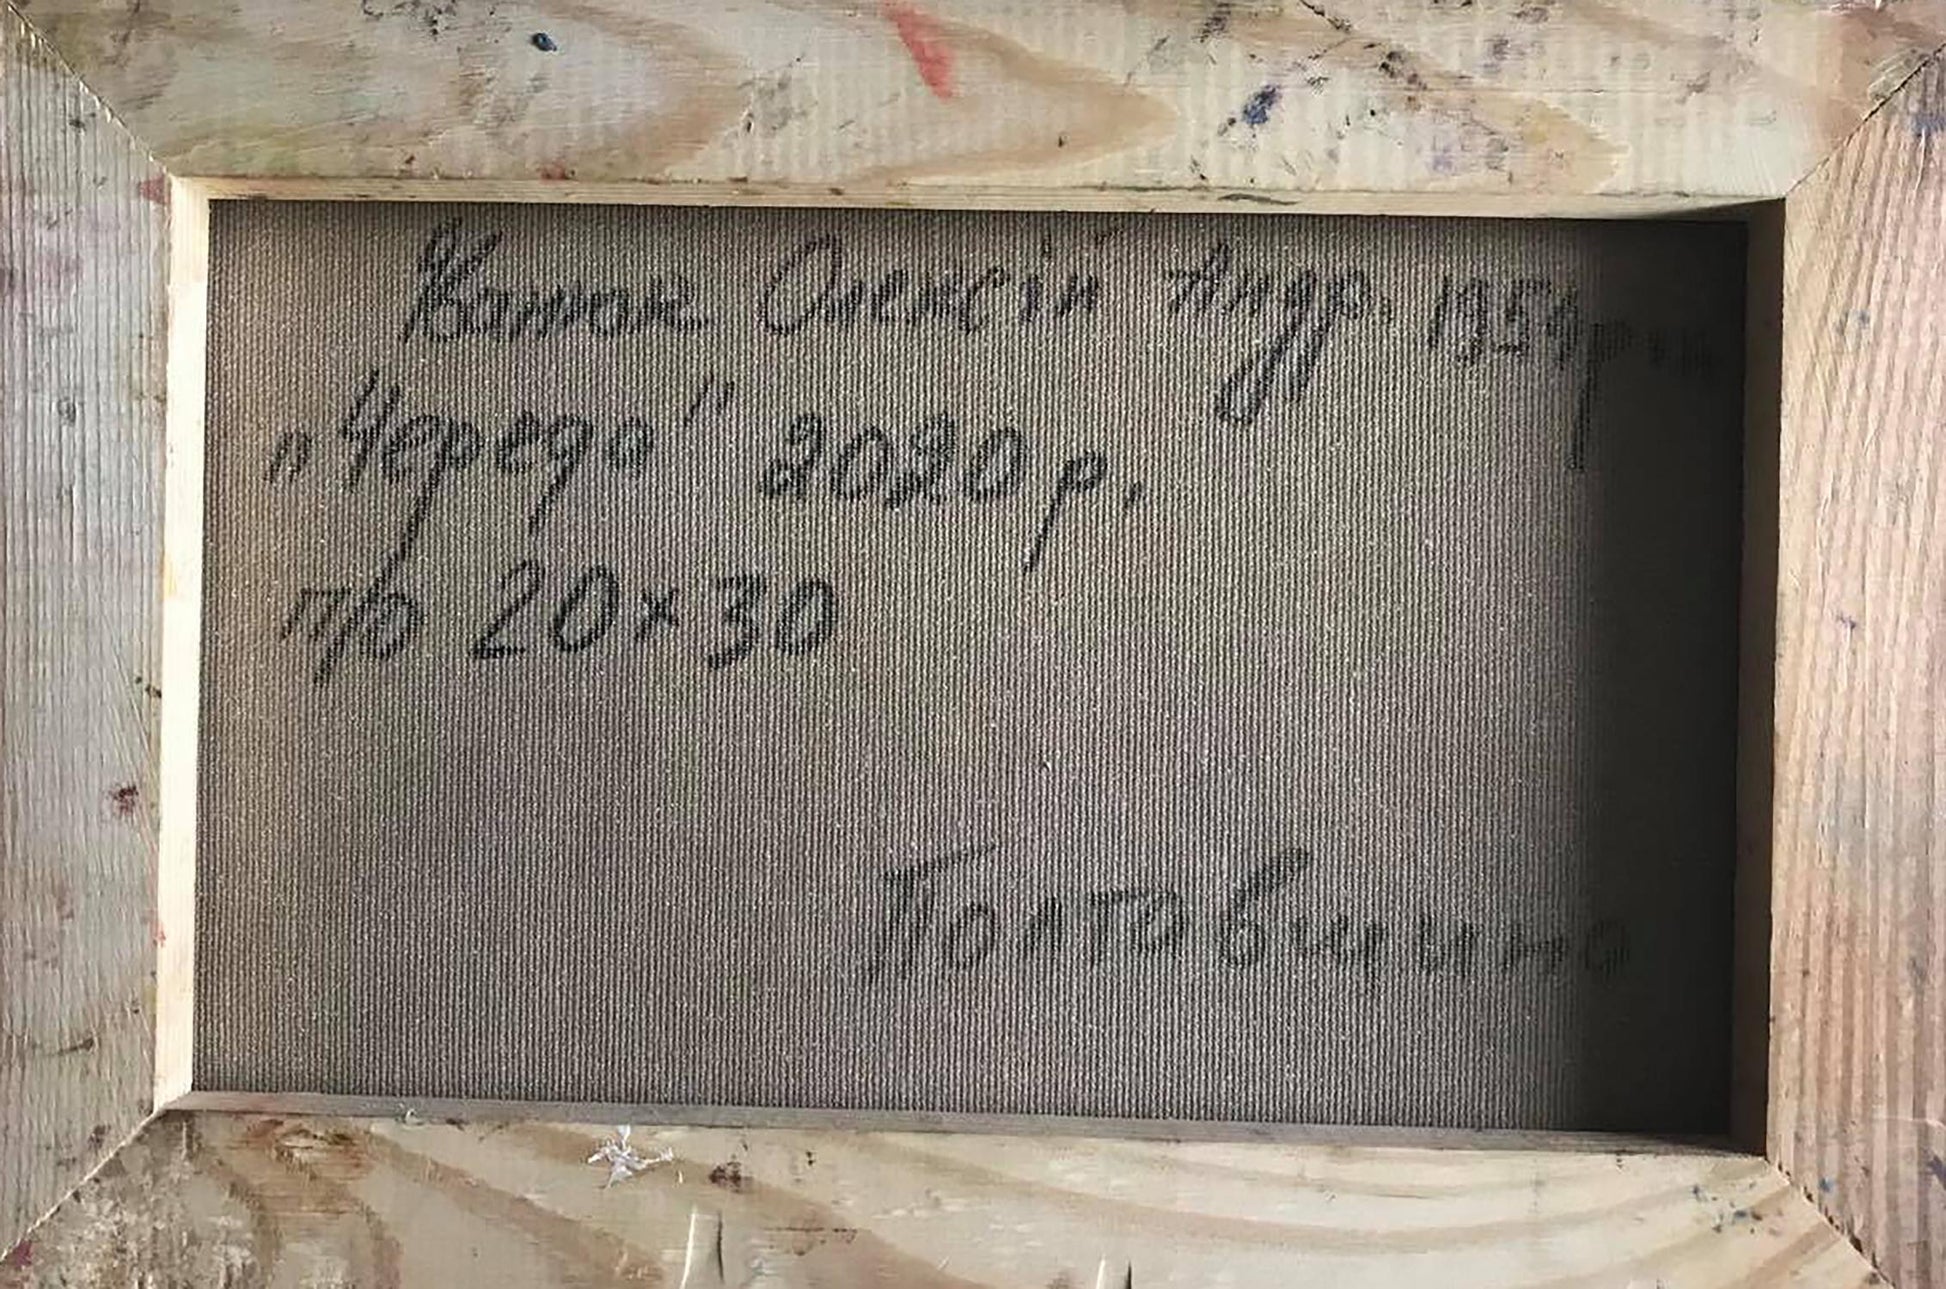 Олексій Андр. 1954р.н.
"Череда" 2020 р.
п/о 20×30
Полтавщина